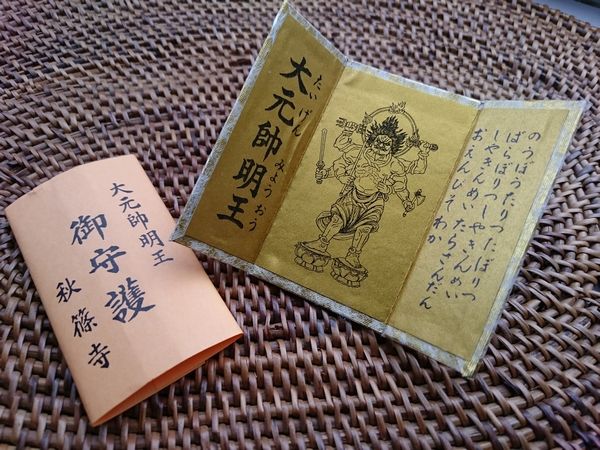 大元帥明王
御守護
秋篠寺
大元帥明王
たいげんみょうおう
のうぼうたりつたぼりつ
ばらぼりつしやきんめい
しやきんめいたらさんだん
おえんびそわか